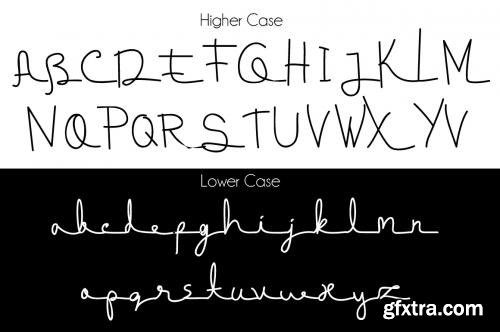 Higher Case
ABCDEFGHIJKLM
NOPQRSTUVWXYV
Lower Case
abcdepghijklmn
opqrstuvwxyz
gfxtra.com